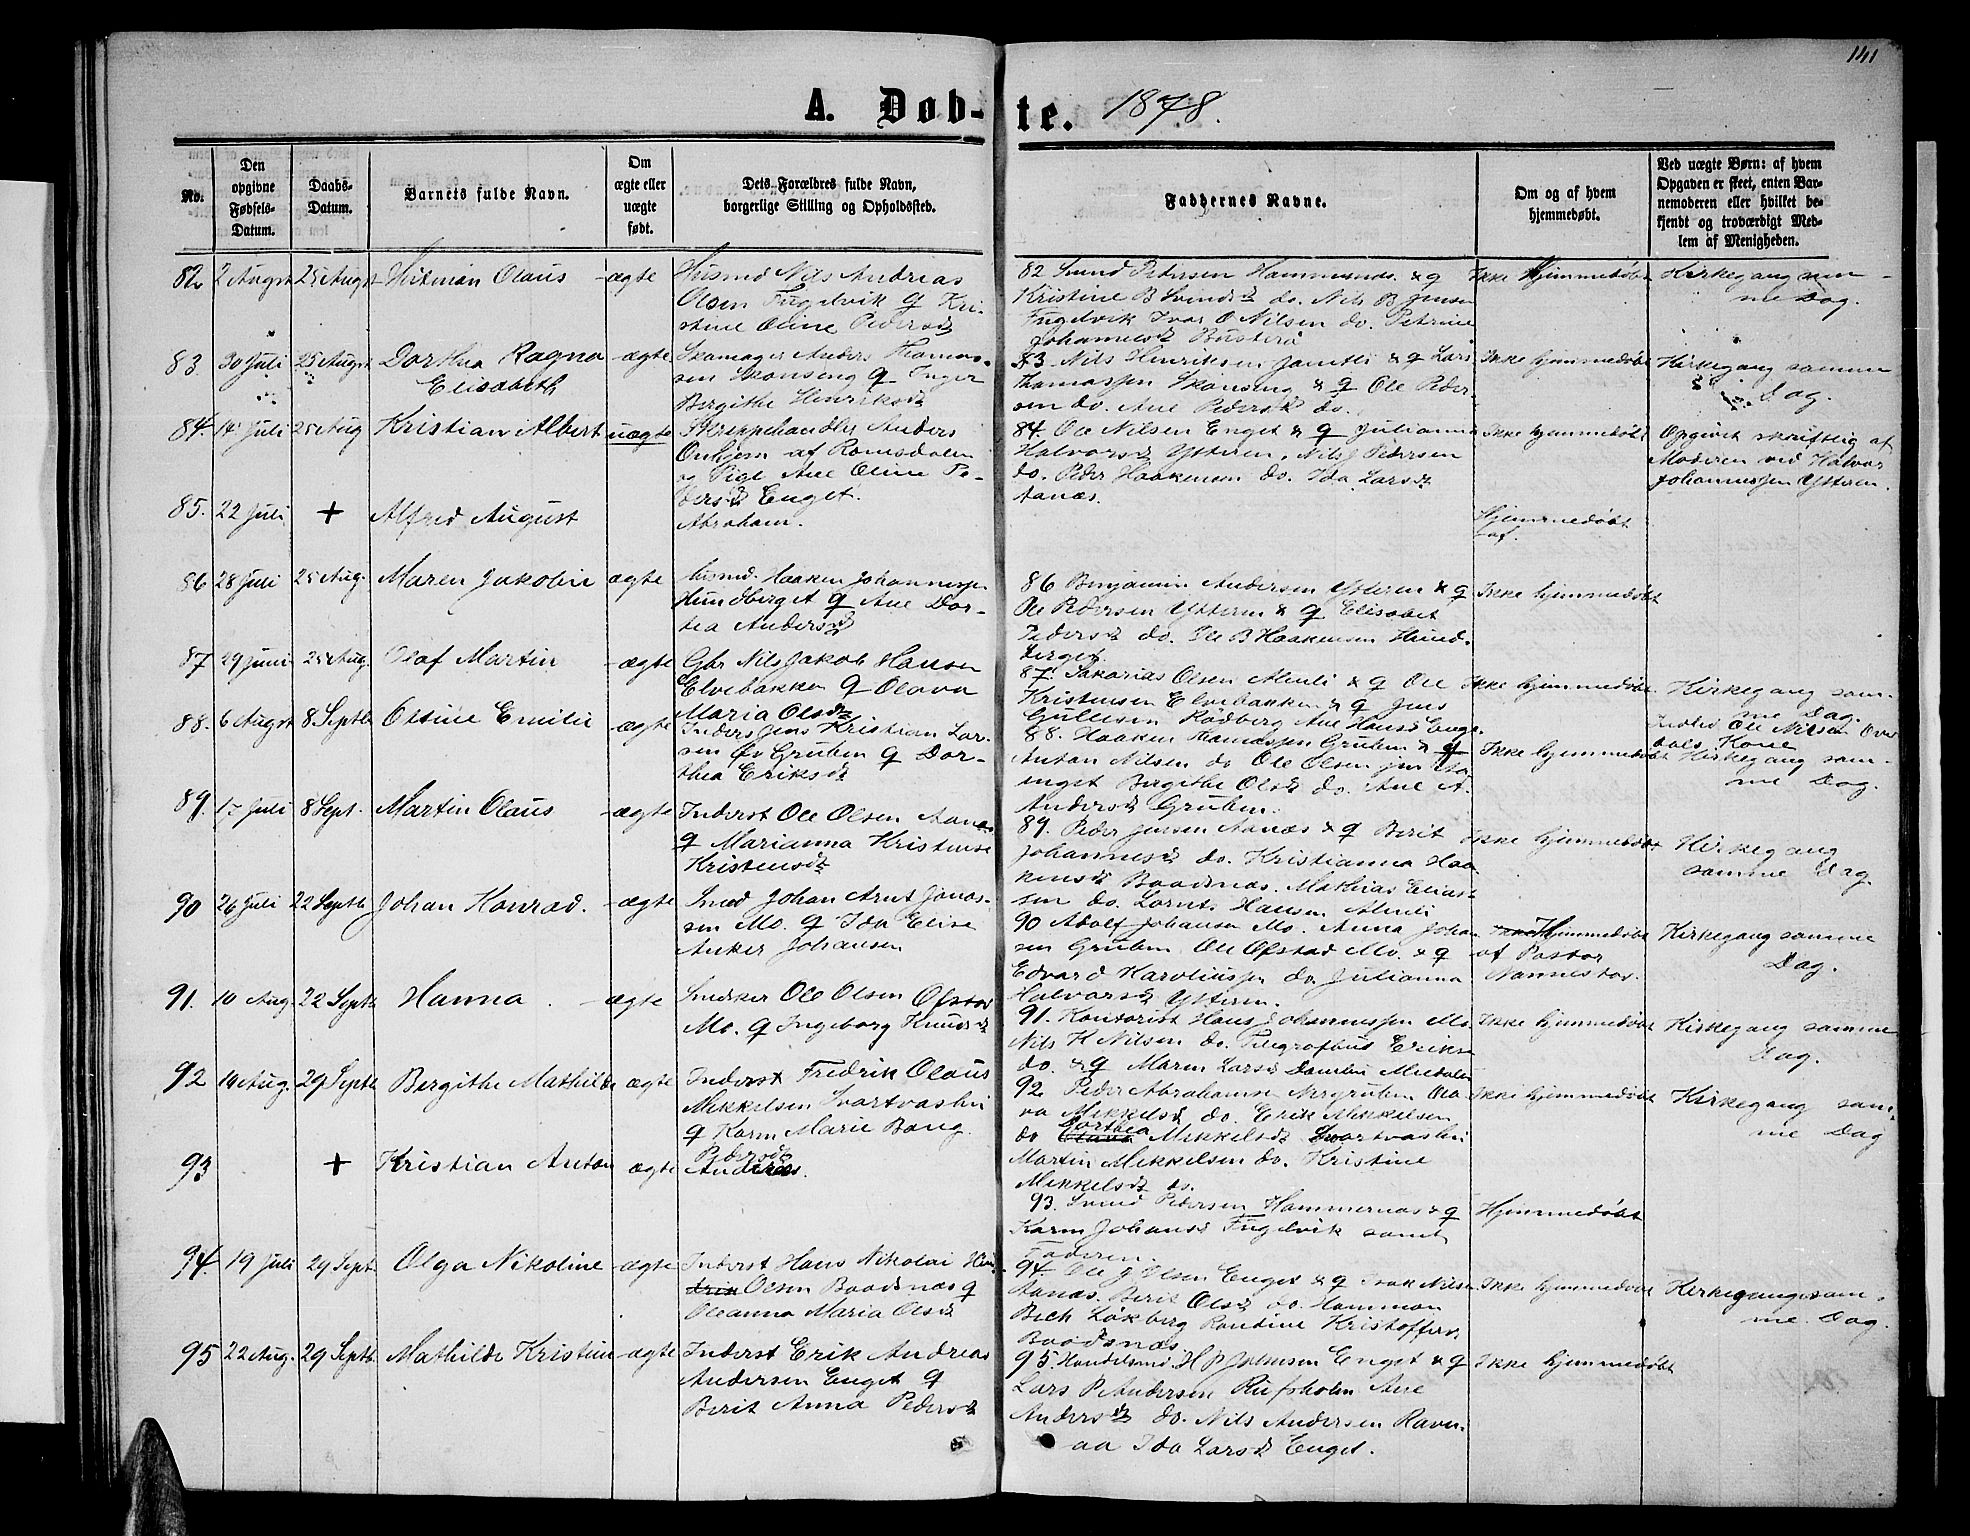 141
A. Døbte. 1878.
No.
Den opgivne Fødsels-Datum.
Daabs-Datum.
Barnets fulde Navn.
Om ægte eller uægte født.
Dets Forældres fulde Navn, borgerlige Stilling og Opholdssted.
Faddernes Navne.
Om og af hvem hjemmedøbt.
Ved uægte Børn: af hvem Opgaven er skeet, enten Barnemoderen eller hvilket bekjendt og troværdigt Medlem af Menigheden.
82 2 Augst 25 Augst Hitman Olaus ægte Husmd Nils Andreas
Olsen Fugelvik & Kri-
stine Oline Pedersd
82 Svend Pedersen Hammernes & q
Kristine B Svendsd do. Nils B Jensen
Fugelvik Ivar O Nilsen do. Petrine
Johannesd
Ikke hjemmedøbt
Kirkegang sam-
me Dag.
83 30 Juli 25 Augst Dorthea Ragna ægte Skomager Anders Thomas-
Elisabeth
sen Skonseng & Inger
Bergithe Henriksd
83. Nils Henriksen & q Lars
Thomassen Skonseng & q Ole Peder-
sen do. Ane Pedersd do.
Ikke hjemmedøbt
Kirkegang samme
Dag.
84. 14 Juli 25 Aug Kristian Albert uægte Skreppehandler Anders
af Romsdalen
og Pige Ane Oline Pe-
dersd Enget.
84 Ole Nilsen Enget & q Julianna
Halvorsd Ytteren, Nils J Pedersen
do. Peder Haakensen do. Ida Larsd
Aanæs.
Ikke hjemmedøbt
Opgivet skriftlig af
Moderen ved Halvor
Johannessen Ytteren.
85. 22 Juli + Alfred August
Abraham.
Hjemmedøbt
af.
86 28 Juli 25 Aug. Maren Jakobine ægte Husmd. Haaken Johannessen
Hundberget & Ane Dor-
tea Andersd
86 Benjamin Andersen Ytteren & q
Ole Pedersen Ytteren & q Elisabet
Pedersd do. Ole B Haakensen Hund-
berget.
Ikke hjemmedøbt
87 29 Juni 25 Aug. Olaf Martin ægte Gbr Nils Jakob Hansen
Elvebakken & Olava
Maria Olsd
87. Sakarias Olsen & q Ole
Kristensen Elvebakken & q Jens
Gullesen Rødberg Ane Hansd Enget
Ikke hjemmedøbt
Kirkegang sam-
me Dag.
88. 6 Augst 8 Septb Oltine Emilie ægte Inders Jens Kristian Lar-
sen Øv Gruben & Dor-
thea Eriksd
88. Haaken Thomassen Gruben & q
Anton Nilsen do Ole Olsen jun
Bergithe Olsd do. Ane A.
Andersd Gruben.
Ikke hjemmedøbt
Ole Nilsen
Kone
Kirkegang sam-
me Dag.
89. Juli 8 Sept. Martin Olaus ægte Inderst Ole Olsen Aanæs
& Marianna Kristine
Kristensd
89. Peder Jensen Aanæs & q Berit
Johannesd do. Kristianna Haa-
kensd Baadsnæs. Mathias Elias-
sen do. Lornts Hansen
Ikke hjemmedøbt
Kirkegang
samme Dag.
90 26 Juli 22 Septb Johan Konrad. ægte Smed Johan Arnt Jonas-
sen Mo. & Ida Elise
Anker Johansen
90 Adolf Johansen Mo. Anna Johan
sen Gruben Ole Ofstad Mo. & q
Edvard Karoliussen do. Julianna
Halvorsd Ytteren.
Hjemmedøbt
af Pastor
Nannestad.
Kirkegang samme
Dag.
91. 10 Aug. 22 Septb Hanna. ægte Snedker Ole Olsen Ofstad
Mo. & Ingeborg Knudsd
91. Kontorist Hans Johannessen Mo
Nils H Nilsen do. Erikse
do. & q Maren Larsd
Ikke hjemmedøbt
Kirkegang samme
Dag.
92 14 Aug. 29 Septb Bergithe Mathilde ægte Inderst Fredrik Olaus
Mikkelsen Svartvashei
& Karen Marie Bang
Pedersd
92 Peder Abrahamsen Nergruben Ola-
va Mikkelsd do. Erik Mikkelsen
do Dorthea Mikkelsd Svartvashei
Martin Mikkelsen do. Kristine
Mikkelsd do.
Ikke hjemmedøbt
Kirkegang sam-
me Dag
93 + Kristian Anton ægte Andreas.
93. Svend Pedersen Hammernæs & q
Karen Johansd Fugelvik samt
Faderen.
Hjemmedøbt
94. 19 Juli 29 Sept Olga Nikoline ægte Inderst Hans Nikolai
Olsen Baadsnæs &
Oleanna Maria Olsd
94. Ole J Olsen Enget & q Isak Nilsen
Aanæs. Berit Olsd do. Hammon
Bech Løkberg Kristoffers
Baadsnæs
Ikke hjemmedøbt
Kirkegang sam-
me Dag.
95 22 Aug. 29 Septb. Mathilde Kristine ægte Inderst Erik Andreas
Andersen Enget &
Berit Anna Pedersd
95. Handelsmd. H P Jensen Enget & q
Lars P Andersen Rufsholm Ane
Andersd do. Nils Andersen Ravn-
aa Ida Larsd Enget.
Ikke hjemmedøbt